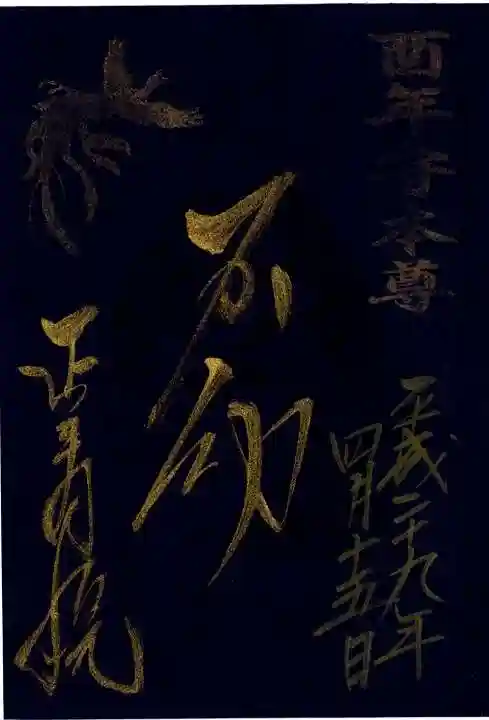 酉年守本尊
平成二十九年
四月十五日
不動
正寿院